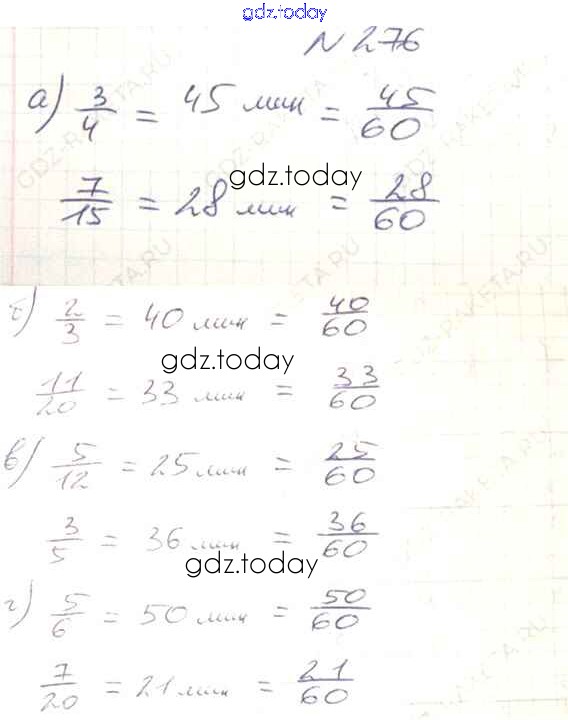 gdz.today
N 276
а) 3/4 = 45 мин = 45/60
gdz.today
7/15 = 28 мин = 28/60
б) 2/3 = 40 мин = 40/60
gdz.today
11/20 = 33 мин = 33/60
в) 5/12 = 25 мин = 25/60
3/5 = 36 мин = 36/60
gdz.today
г) 5/6 = 50 мин = 50/60
7/20 = 21 мин = 21/60